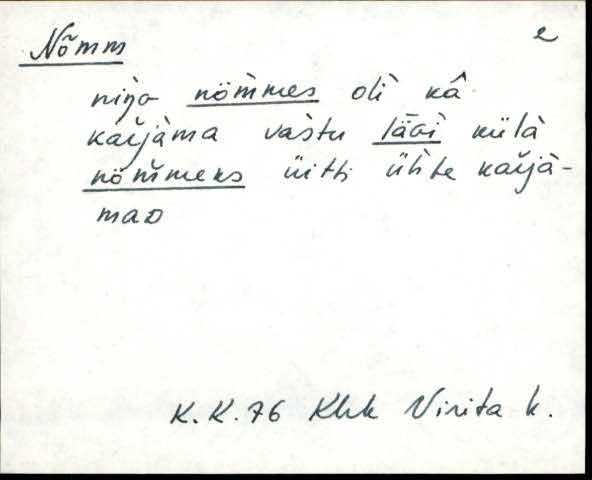 Nõmm e
niŋo nömmes oli kâ
kaŕjàma vastu läbi külà
nömmeks üitti ühte kaŕjà-
mao
K.K.76 Khk Virita k.